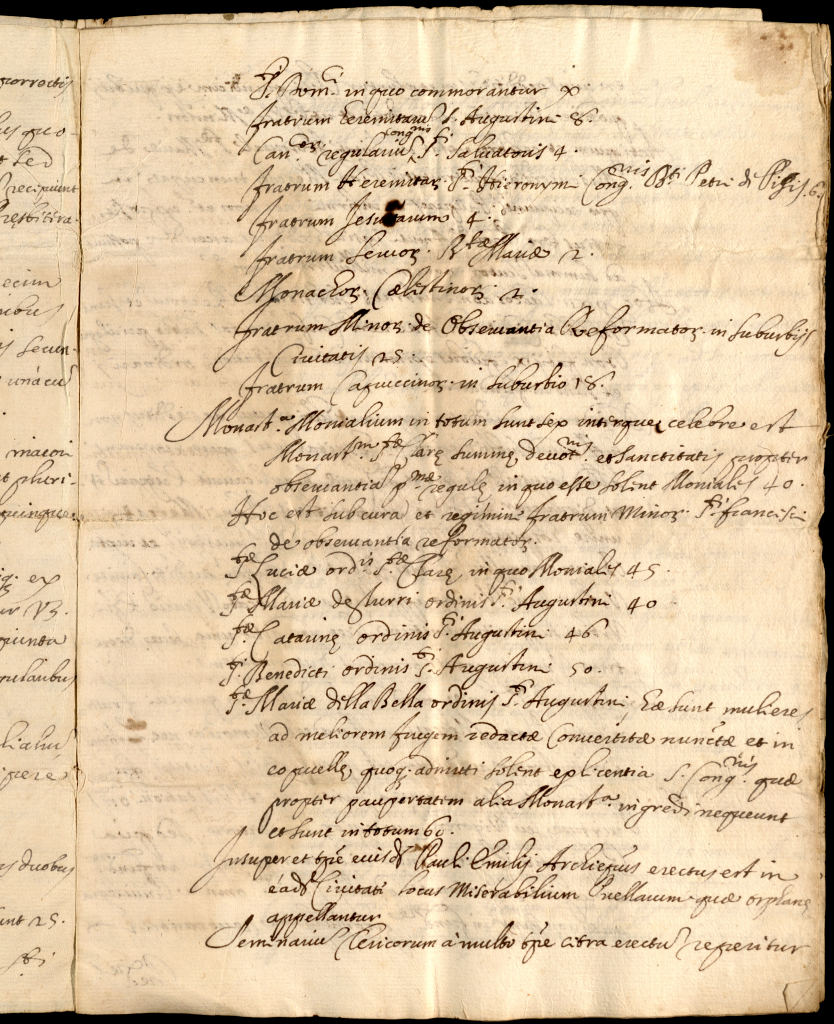 porrectis
S.ti Dom.ci in quo commorantur x.
fratrum Eremitarũ S. Augustini 8.
Can.cor regulariũ Cong.nis S.ti Salvatoris 4.
fratrum Heremitar. S.ti Hieronymi Cong.nis B.ti Petri di Pisis. 6.
fratrum Jesuatarum 4.
fratrum Servor. B.tæ Mariæ 2.
Monachor. Cælestinor. 2.
fratrum Minor. de Observantia Reformator. in suburbijs
Civitatis 25.
fratrum Capuccinor. in suburbio 18.
Monast.a Monialium in totum sunt sex inter quę celebre est
Monast.m S.tæ Clarę summę devot.nis et sanctitatis propter
observantiã p.mæ regulę in quo esse solent Moniales 40.
Hoc est sub cura et regimine fratrum Minor. S.ti francisci
de observantia reformator.
S.tæ Luciæ ord.is S.tæ Clarę, in quo Moniales 45.
S.tæ Mariæ de Surri ordinis S.ti Augustini 40
S.tæ Catarinę ordinis S.ti Augustini 46
S.ti Benedicti ordinis S.ti Augustini 50.
S.tæ Mariæ della Bella ordinis S.ti Augustini, Eæ sunt mulieres
ad meliorem frugem redactæ Convertitæ nunctæ et in
eo puellę quoq. admitti solent ex licentia S. Cong.nis quæ
propter paupertatem alia Monast.a ingredi nequeunt
et sunt in totum 60.
Insuper et tpe eiusdẽ Pauli Emilij Archiepus erectus est in
eadẽ Civitati locus Miserabilium Puellarum quæ orphanę
appellantur
Seminariũ Clericorum a multo tpe citra erectũ reperitur